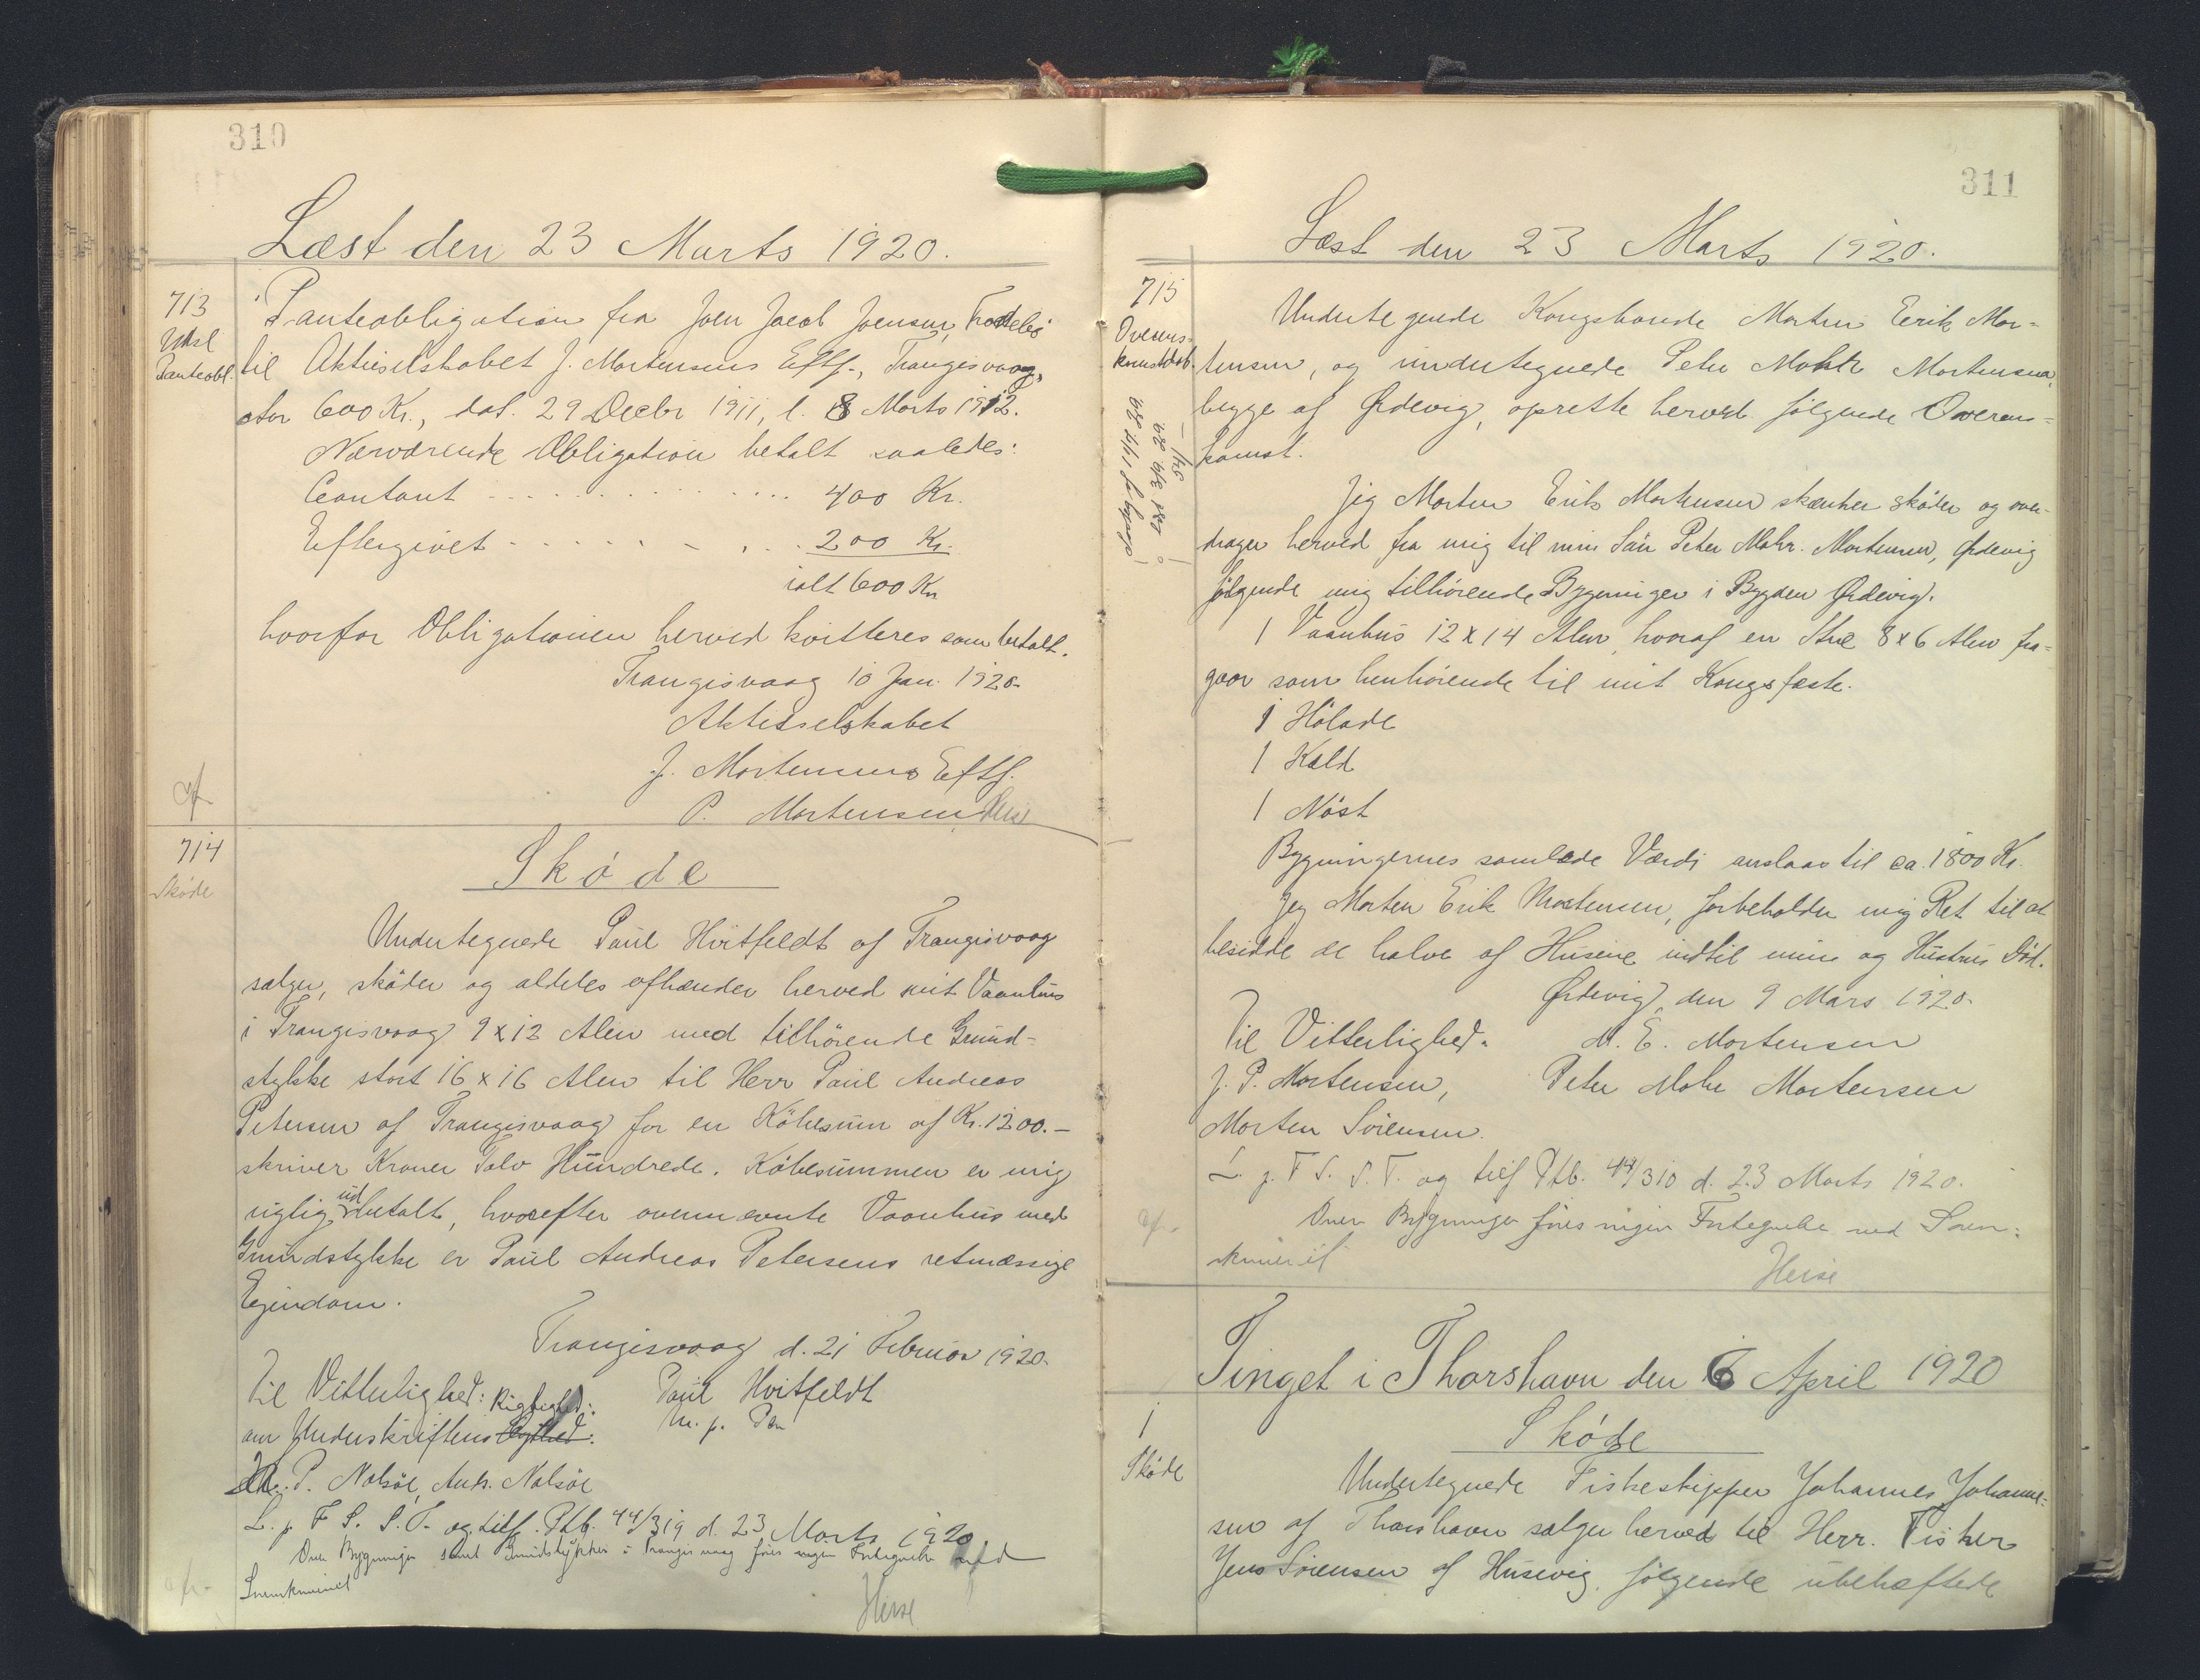 310
Læst den 23 Marts 1920.
713
Udsl
Panteobl.
Panteobligation fra Joen Jacob Joensen, Frodebø
til Aktieselskabet J. Mortensens Eftf., Trangisvaag,
stor 600 Kr., dat. 29 Decbr 1911, l. 8 Marts 1912.
Nærværende Obligation betalt saaledes:
Contant - - - - - - - - 400 Kr.
Eftergivet - - - - - - - 200 Kr.
ialt 600 Kr
hvorfor Obligationen herved kvitteres som betalt.
Trangisvaag 10 Jan. 1920.
Aktieselskabet
J. Mortensens Eftf.
P. Mortensen
714
Skøde
Skøde
Undertegnede Paul Hvitfeldt af Trangisvaag
sælger, skøder og aldeles afhænder herved mit Vaanhus
i Trangisvaag 9 x 12 Alen med tilhørende Grund-
stykke stort 16 x 16 Alen til Herr Paul Andreas
Petersen af Trangisvaag for en Købesum af Kr. 1200.-
skriver Kroner Tolv Hundrede. Købesummen er mig
rigtig udbetalt, hvorefter ovennævnte Vaanhus med
Grundstykke er Paul Andreas Petersens retmæssige
Ejendom.
Trangisvaag d. 21 Februar 1920.
Til Vitterlighed: Rigtighed: Paul Hvitfeldt
om Underskriftens m. p. Pen
P. Nolsøe, Anth. Nolsøe
L. p. F. S. S. T. og tilf. Ptb. 44/319 d. 23 Marts 1920
Over Bygninger samt Grundstykker i Trangisvaag føres ingen Fortegnelse ved
Sorenskriveriet
Heise
311
Læst den 23 Marts 1920.
715
Overens-
komst
Undertegnede Kongsbonde Morten Erik Mor-
tensen, og undertegnede Peter Mohr Mortensen,
begge af Ørdevig, oprette herved følgende Overens-
komst.
Jeg Morten Erik Mortensen skænker skøder og over-
drager herved fra mig til min Søn Peter Mohr Mortensen, Ørdevig
følgende mig tilhørende Bygninger i Bygden Ørdevig.
1 Vaanhus 12 x 14 Alen, hvoraf en Stue 8 x 6 Alen fra-
gaar som henhørende til mit Kongsfæste.
1 Hølade
1 Kæld
1 Nøst
Bygningernes samlede Værdi anslaas til ca. 1800 Kr.
Jeg Morten Erik Mortensen, forbeholder mig Ret til at
besidde de halve af Husene indtil min og Hustrus Død.
Ørdevig, den 9 Mars 1920.
Til Vitterlighed. M. E. Mortensen
J. P. Mortensen, Peter Mohr Mortensen
Morten Sørensen.
L. p. F. S. S. T. og tilf Ptb. 44/310 d. 23 Marts 1920.
Over Bygninger føres ingen Fortegnelse ved Soren-
skriveriet
Heise
Tinget i Thorshavn den 6 April 1920
1
Skøde
Skøde
Undertegnede Fiskeskipper Johannes Johanne-
sen af Thorshavn sælger herved til Herr. Fisker
Jens Sørensen af Husevig følgende ubehæftede